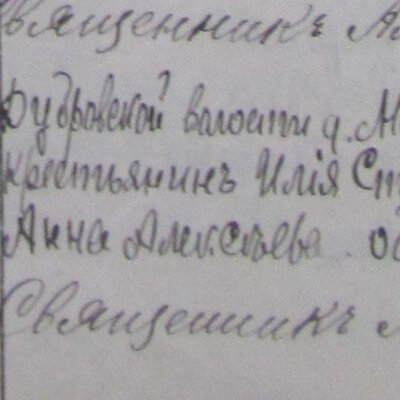 Священникъ
Дубровской волости д. М
крестьянинъ Илія Ст
Анна Алексѣева об
Священникъ